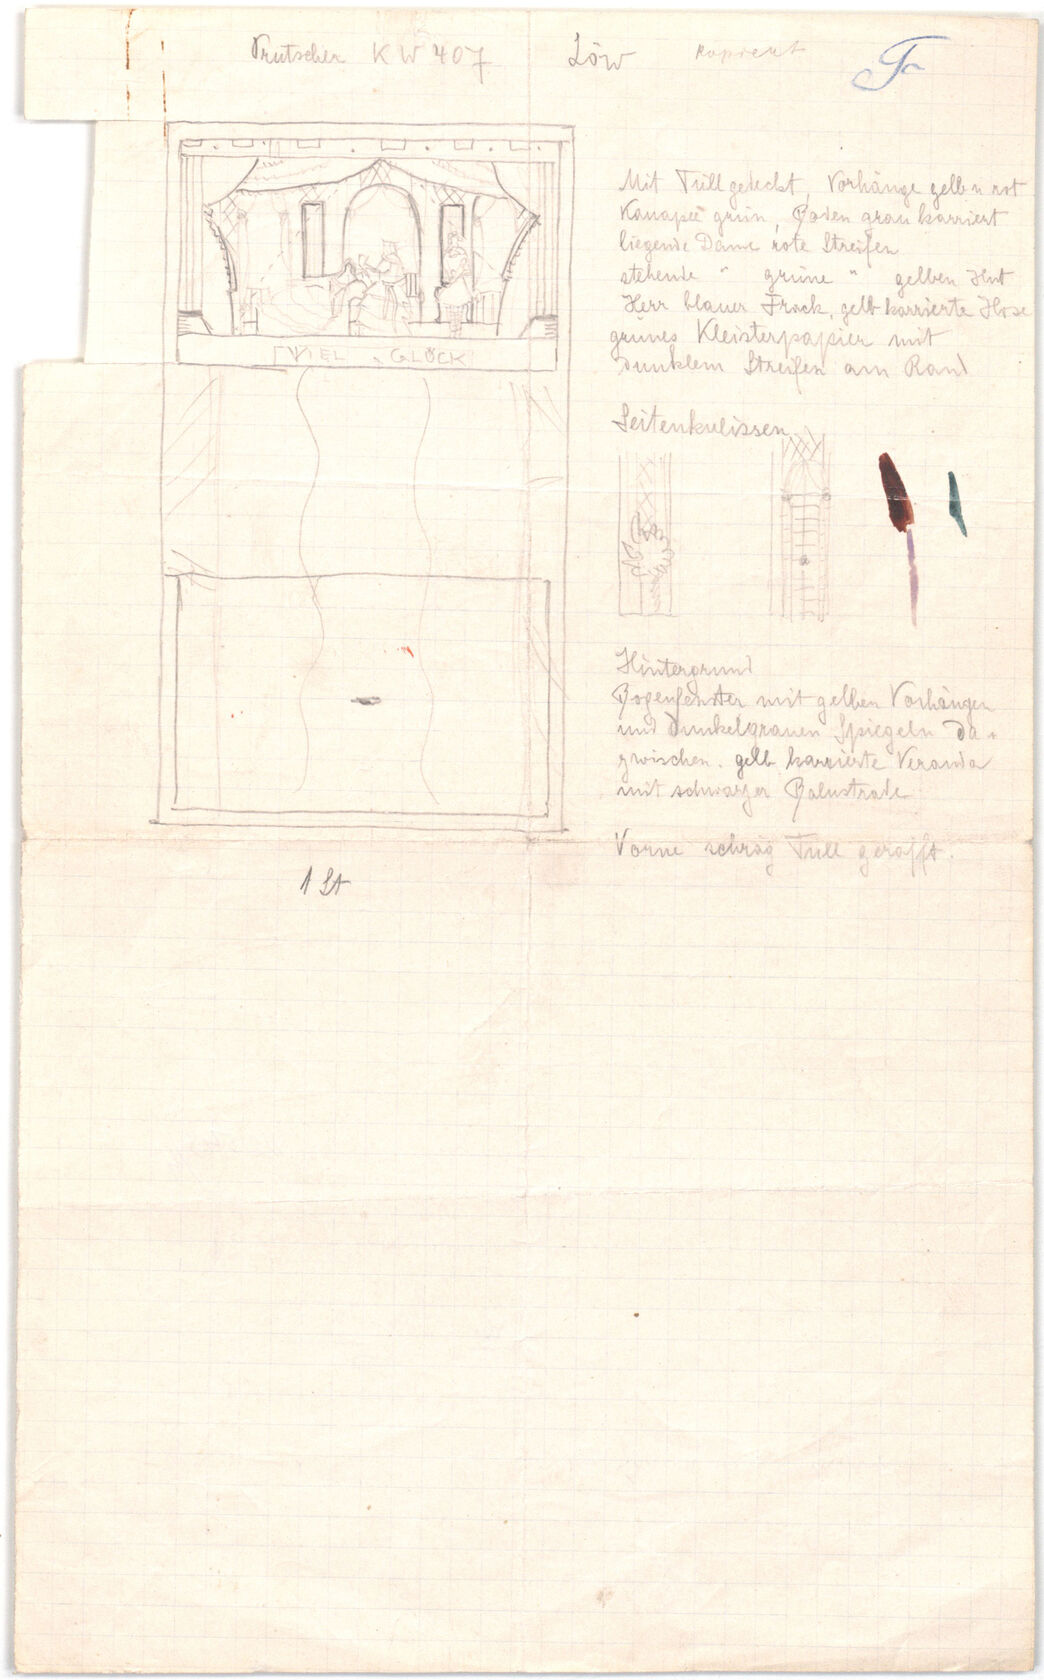 Prutscher KW 407 Löw kopiert
Mit Tüll gedeckt, Vorhänge gelb n rot
Kanapee grün, Boden grau karriert
liegende Dame rote Streifen
stehende " grüne " gelben Hut
Herr blauer Frack, gelb karrierte Hose
grünes Kleisterpapier mit
dunklem Streifen am Rand
VIEL GLÜCK
Seitenkulissen
Hintergrund
Bogenfenster mit gelben Vorhängen
und dunkelgrauen Spiegeln da-
zwischen. gelb karrierte Veranda
mit schwarzer Balustrade
Vorne schräg Tüll gerafft.
1 St